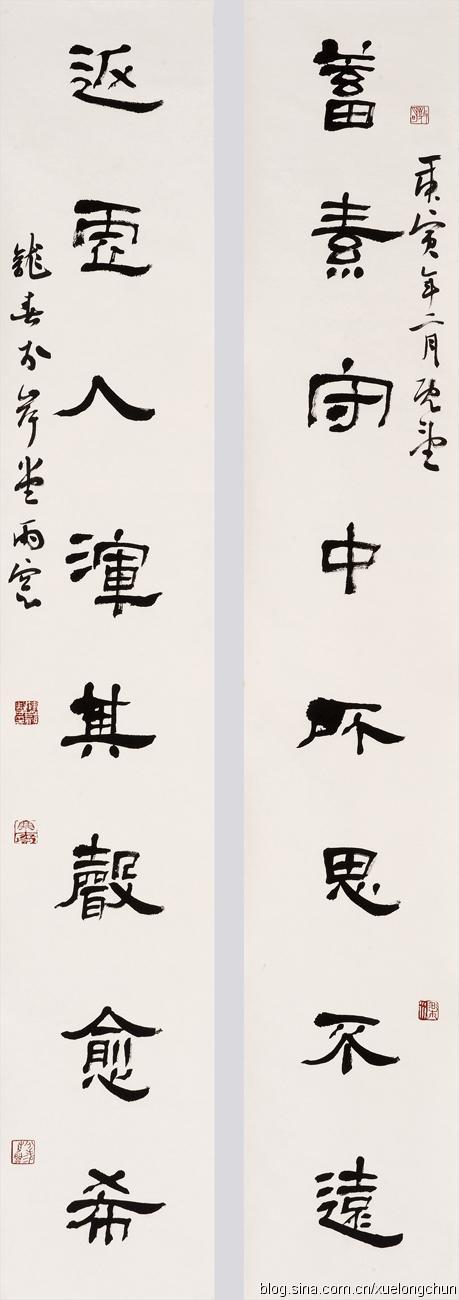 庚寅年二月既望
蓄素守中所思不遠
返虛入渾其聲愈希
龍春於岸堂雨窗
blog.sina.com.cn/xuelongchun